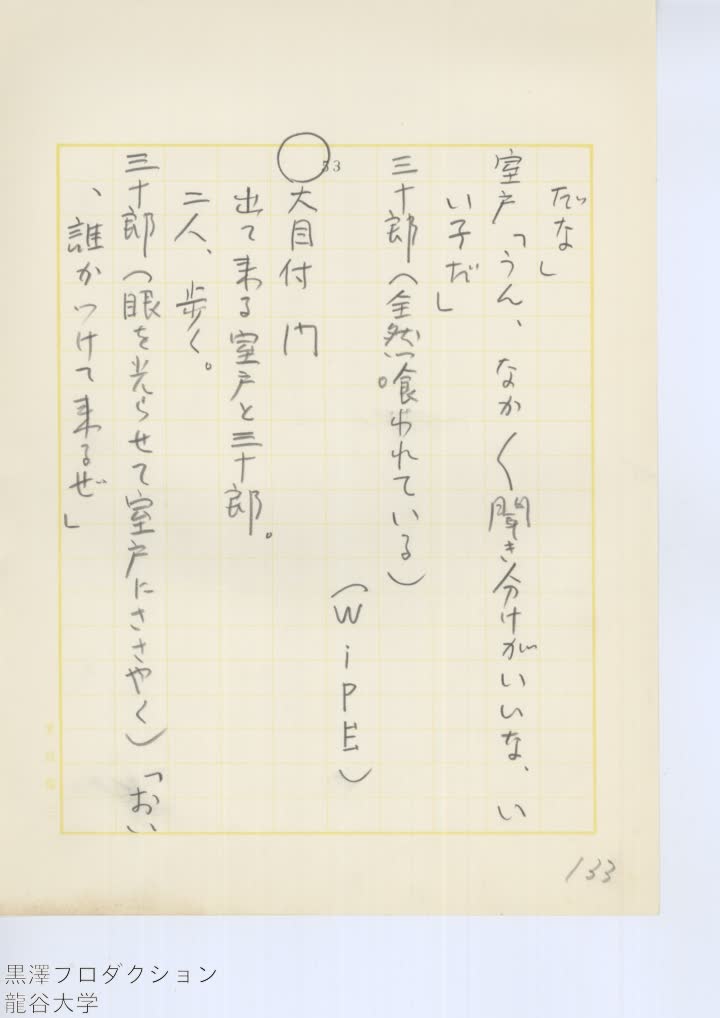 だな」
室戸「うん、なか〱聞き分けがいいな、い
い子だ」
三十郎（全然喰われている）。
（WiPE）
53
○大目付 門
出て来る室戸と三十郎。
二人、歩く。
三十郎（眼を光らせて室戸にささやく）「おい
、誰かつけて来るぜ」
133
黒澤プロダクション
龍谷大学